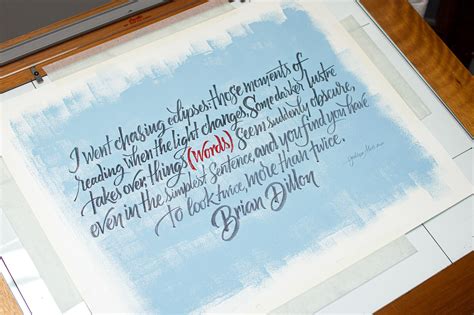 I went chasing eclipses: those moments of
reading when the light changes, Some darker lustre
takes over, things (words) Seem suddenly obscure,
even in the simplest Sentence, and you find you have
to look twice, more than twice.
Brian Dillon